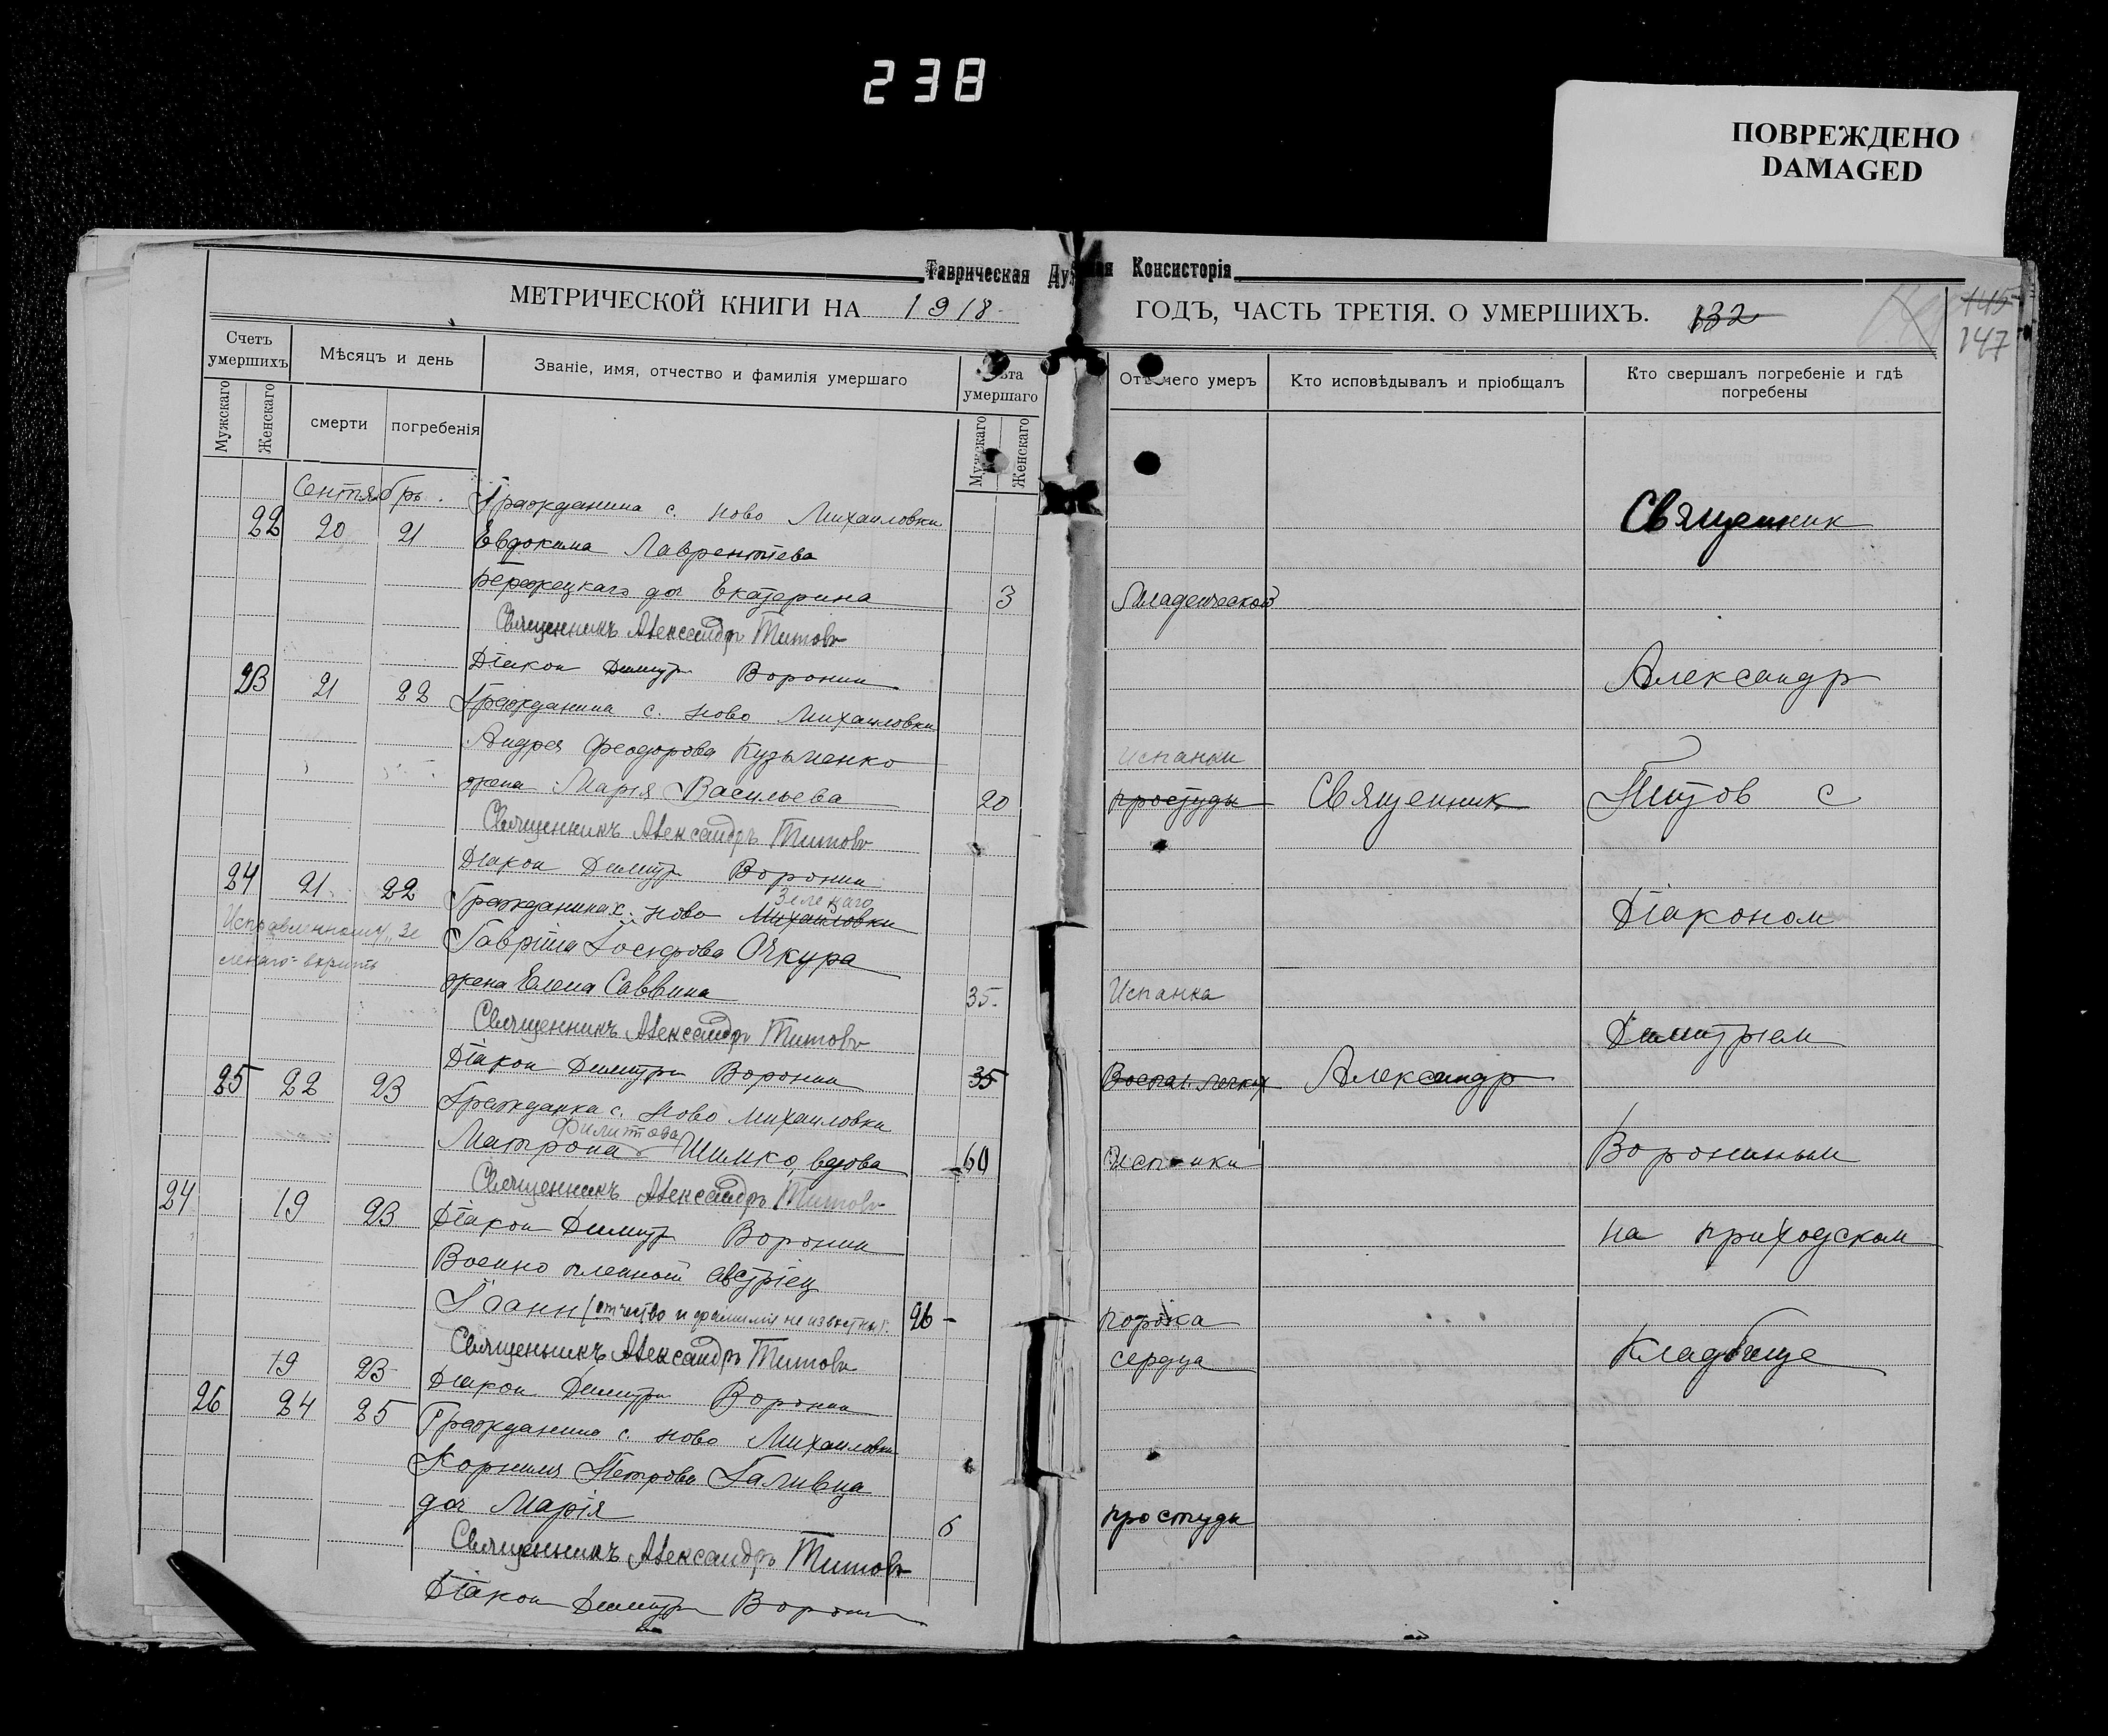 238
ПОВРЕЖДЕНО
DAMAGED
Таврическая Духовная Консисторія
МЕТРИЧЕСКОЙ КНИГИ НА 1918
ГОДЪ, ЧАСТЬ ТРЕТІЯ. О УМЕРШИХЪ. 132
145
147
Счетъ умершихъ
Мужскаго
Женскаго
Мѣсяцъ и день
смерти
погребенія
Званіе, имя, отчество и фамилія умершаго
Лѣта умершаго
Мужскаго
Женскаго
Отъ чего умеръ
Кто исповѣдывалъ и пріобщалъ
Кто свершалъ погребеніе и гдѣ погребены
Сентябрь.
22 20 21 Гражданина с. Ново Михайловки
Евдокима Лаврентіева
Бережецкаго доч Екатерина 3 Младенческой
Священникъ Александръ Титовъ
Діакон Димитр Воронин
23 21 22 Гражданина с. Ново Михайловки
Андрея Феодорова Кузьменко
Испанки
жена Марія Васильева 20 простуды
Священникъ Александръ Титовъ
Діакон Димитр Воронин
Зеленаго
24 21 22 Гражданина с. Ново Михайловки
Исправленному „Зе
ленаго" вѣрить
Гавріила Іосифова Очкура
жена Елена Саввина 35. Испанка
Священникъ Александръ Титовъ
Діакон Димитри Воронин 35 Воспал. легких
25 22 23 Гражданка с. Ново Михайловки
Филитова
Матрона Шимко, вдова 60 Испанки
Священникъ Александръ Титовъ
24 19 23 Діакон Димитр Воронин
Военно пленной австріец
Іоанн (отчество и фамилія не известны). 26 - порока
сердца
Священникъ Александръ Титовъ
19 23 Діакон Димитри Воронин
26 24 25 Гражданина с. Ново Михайловки
Корнилія Петрова Галивца
доч Марія 6 простуды
Священникъ Александръ Титовъ
Діакон Димитр Ворон
Священник
Александр
Священник
Александр
Титов с
Діаконом
Димитріем
Ворониным
на приходском
Кладбище